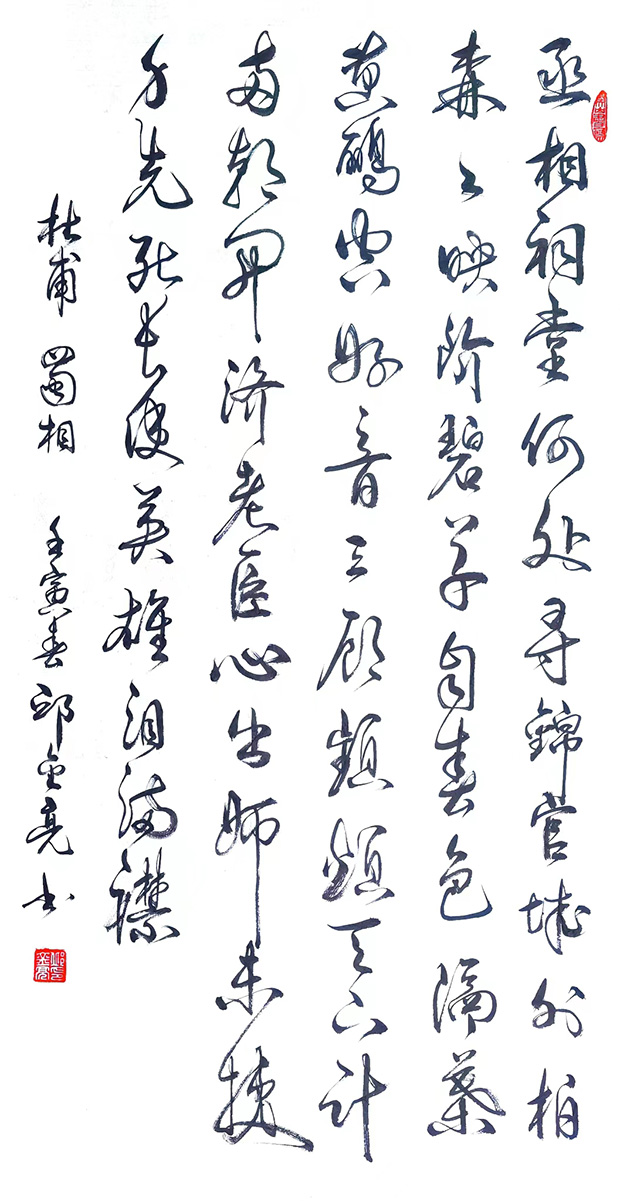 丞相祠堂何处寻錦官城外柏
森々映阶碧草自春色隔葉
黄鹂空好音三顾频烦天下计
两朝开济老臣心出师未捷
身先死长使英雄泪满襟
杜甫 蜀相 壬寅春 邱金亮书